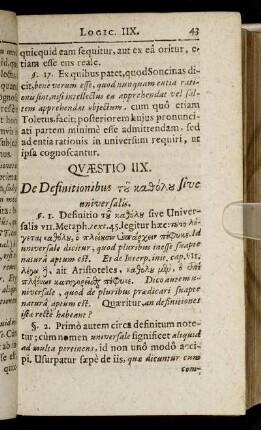 LOGIC. IIX. 43
quicquid eam sequitur, aut ex eâ oritur, e-
tiam esse ens reale.
§. 17. Ex quibus patet, quod Soncinas di-
cit, bene verum esse, quod nunquam entia rati-
onis sint, nisi intellectus ea apprehendat vel sal-
tem apprehendat objectum, cum quô etiam
Toletus facit; posteriorem kujus pronunci-
ati partem minimè esse admittendam, sed
ad entia rationis in universum requiri, ut
ipsa cognoscantur.
QVÆSTIO IIX.
De Definitionibus τȣ͂ καθόλȣ sive
universalis.
§. 1. Definitio τȣ͂ καθόλȣ sive Univer-
salis VII. Metaph. text. 45. legitur hæc:
καθόλȣ, ὃ
universale dicitur, quod pluribus inesse suapte
naturâ aptum est. Et de Interp. inie, cap. VII.
λέγω ἢ, ait Aristoteles, καθόλȣ μὲν, ὃ ἐπὶ
Dico autem u-
niversale, quod de pluribus prædicari suapte
naturâ aptum est. Quæritur, an definitiones
istæ rectè habeant?
§. 2. Primò autem circa definitum note-
tur; cùm nomen universale significet aliquid
ad multa pertinens, id non unô modô acci-
pi. Usurpatur sæpè de iis, quæ dicuntur cum
com-